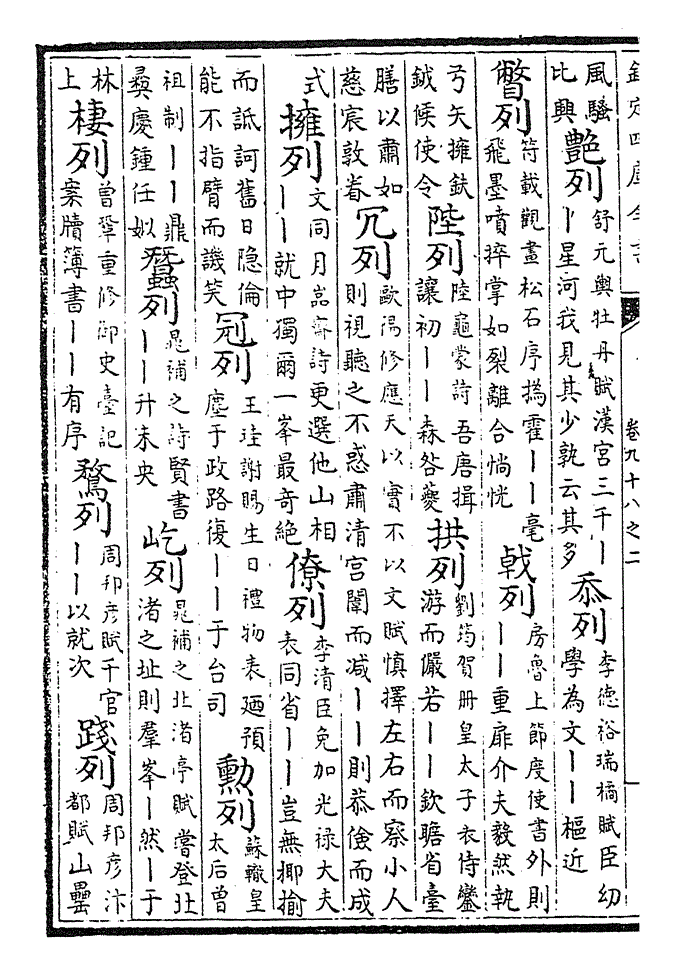 欽定四庫全書
卷九十八之二
風騷
比興
艶列
舒元輿牡丹賦漢宮三千丨
丨星河我見其少孰云其多
忝列
李德裕瑞橘賦臣幼
學為文丨丨樞近
瞥列
符載觀畫松石序撝霍丨丨毫
飛墨噴捽掌如裂離合惝恍
戟列
房魯上節度使書外則
丨丨重扉介夫毅然執
弓矢擁鈇
鉞候使令
陛列
陸龜蒙詩吾唐揖
讓初丨丨森咎夔
拱列
劉筠賀冊皇太子表侍鑾
游而儼若丨丨欽瞻省臺
膳以肅如
慈宸敦眷
冗列
歐陽修應天以實不以文賦慎擇左右而察小人
則視聽之不惑肅清宮闈而减丨丨則恭儉而成
式
擁列
文同月嵓齋詩更選他山相
丨丨就中獨爾一峯最奇絶
僚列
李清臣免加光禄大夫
表同省丨丨豈無揶揄
而詆訶舊日隐倫
能不指臂而譏笑
冠列
王珪謝賜生日禮物表廼預
塵于政路復丨丨于台司
勲列
蘇轍皇
太后曾
祖制丨丨鼎
彛慶鍾任姒
蠶列
晁補之詩賢書
丨丨升未央
屹列
晁補之北渚亭賦嘗登北
渚之址則羣峯丨然丨于
林
上
棲列
曾鞏重修御史臺記
案牘簿書丨丨有序
鵞列
周邦彦賦千官
丨丨以就次
踐列
周邦彦汴
都賦山罍